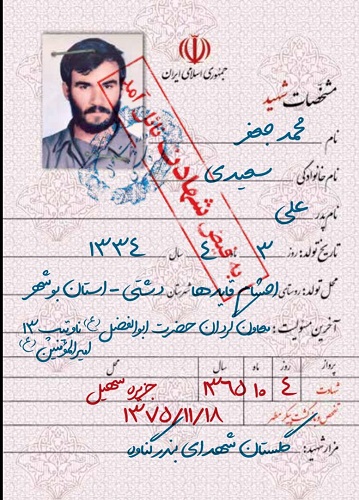 جمهوری اسلامی ایران
مشخصات شهید
نام محمد جعفر
نام خانوادگی سعیدی
نام پدر علی
تاریخ تولد: روز ۳ ماه ۴ سال ۱۳۳۴
به فیض شهادت نائل آمد
محل تولد: روستای احشام قایدها شهرستان دشتی - استان بوشهر
آخرین مسئولیت: معاون گردان حضرت ابوالفضل (ع) ناوتیپ ۱۳ امیرالمومنین (ع)
پرواز روز ماه سال محل
شهادت ۴ ۱۰ ۱۳۶۵ جزیره سهیل
تفحص و بازگشت پیکر مطهر ۱۳۷۵/۱۱/۱۸
مزار شهید: گلستان شهدای بندر گناوه